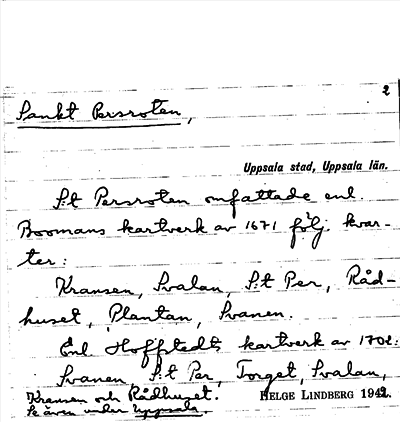 2
Sankt Persroten,
Uppsala stad, Uppsala län.
S:t Persroten omfattade enl.
Boomans kartverk av 1671 följ. kvar-
ter:
Kransen, Svalan, S:t Per, Råd-
huset, Plantan, Svanen.
Enl. Hoffstedts kartverk av 1702:
Svanen, S:t Per, Torget, Svalan,
Kransen och Rådhuset.
Se även under Uppsala.
HELGE LINDBERG 1942.